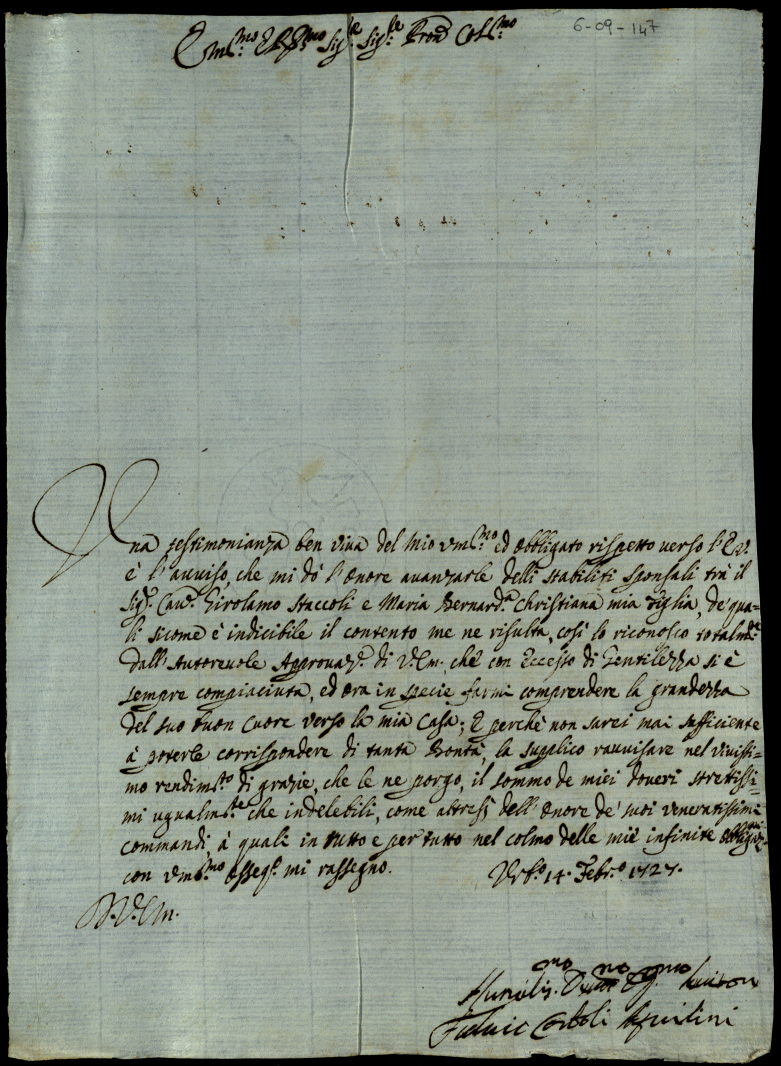 6-09-147
Em.mo E R.mo Sig.re Sig.re Pron Col.mo
Una testimonianza ben viva del mio um.mo ed obbligato rispetto verso l'E.V.
è l'avviso, che mi dò l'onore avanzarle delli stabiliti sponsali trà il
Sig.r Cav.r Girolamo Staccoli e Maria Bernard.a Christiana mia figlia, de' qua=
li sicome è indicibile il contento me ne risulta, così lo riconosco totalm.te
dall'Autorevole Approvaz.e di V. Em. che con Eccesso di Gentilezza si è
sempre compiaciuta, ed ora in specie farmi comprendere la grandezza
del suo buon Cuore verso la mia Casa; E perche non sarei mai sufficiente
à poterle corrispondere di tanta Bontà, la supplico ravvisare nel vivissi=
mo rendim.to di grazie, che le ne porgo, il sommo de miei doveri strettissi=
mi ugualm.te che indelebili, come altresì dell'onore de' suoi veneratissimi
commandi, à quali in tutto e per tutto nel colmo delle mie infinite obbligaz.ni
con um.mo osseq.o mi rassegno. Urb.o 14. Febr.o 1727.
D. V. Em.
Humiliss.mo Dev.mo Obg.mo Servitore
Fulvio Corboli Aquilini